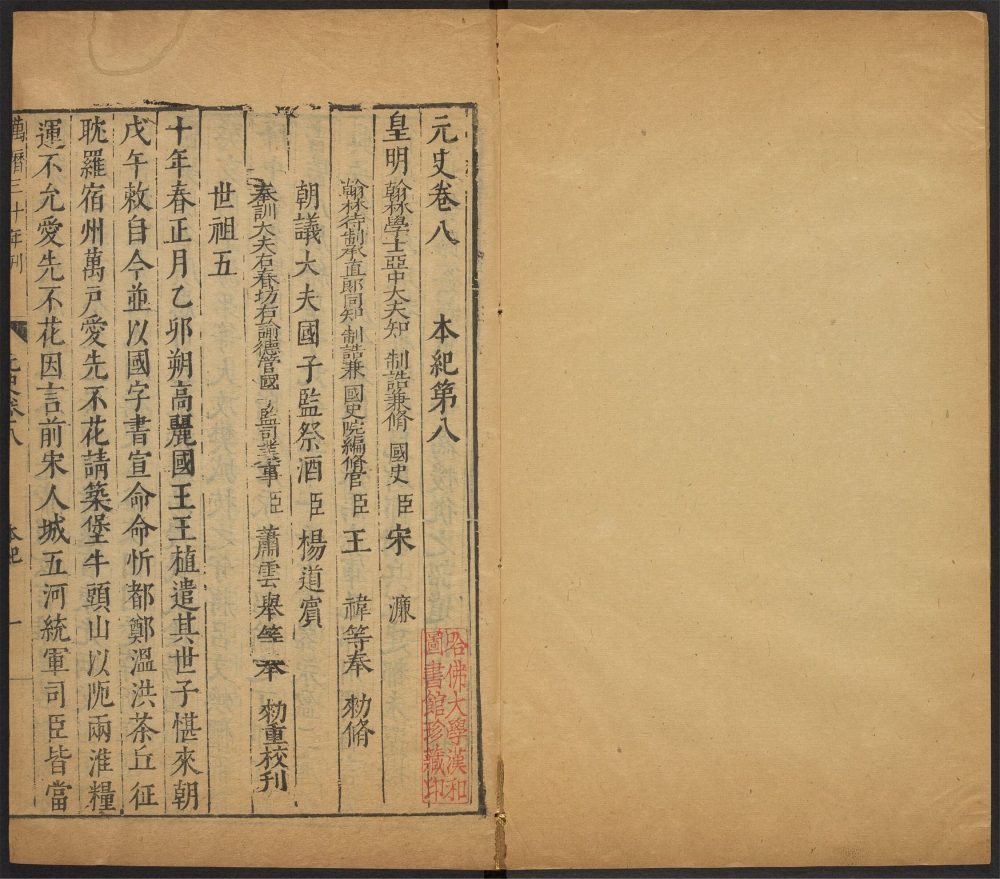 元史卷八　本紀第八
皇明翰林學士亞中大夫知　制誥兼脩　國史臣宋　濂
翰林待制承直郎同知　制誥兼　國史院編脩官臣王　禕等奉　勑脩
朝議大夫國子監祭酒臣楊道賓
奉訓大夫右春坊右諭德管國　監司業事臣蕭雲舉等奉　勑重校刊
世祖五
十年春正月乙卯朔高麗國王王植遣其世子愖來朝
戊午敕自今並以國字書宣命命忻都鄭溫洪茶丘征
耽羅宿州萬戶愛先不花請築堡牛頭山以阨兩淮糧
運不允愛先不花因言前宋人城五河統軍司臣皆當
萬曆三十年刊
元史卷八
本紀
一
哈佛大學漢和
圖書館珍藏印